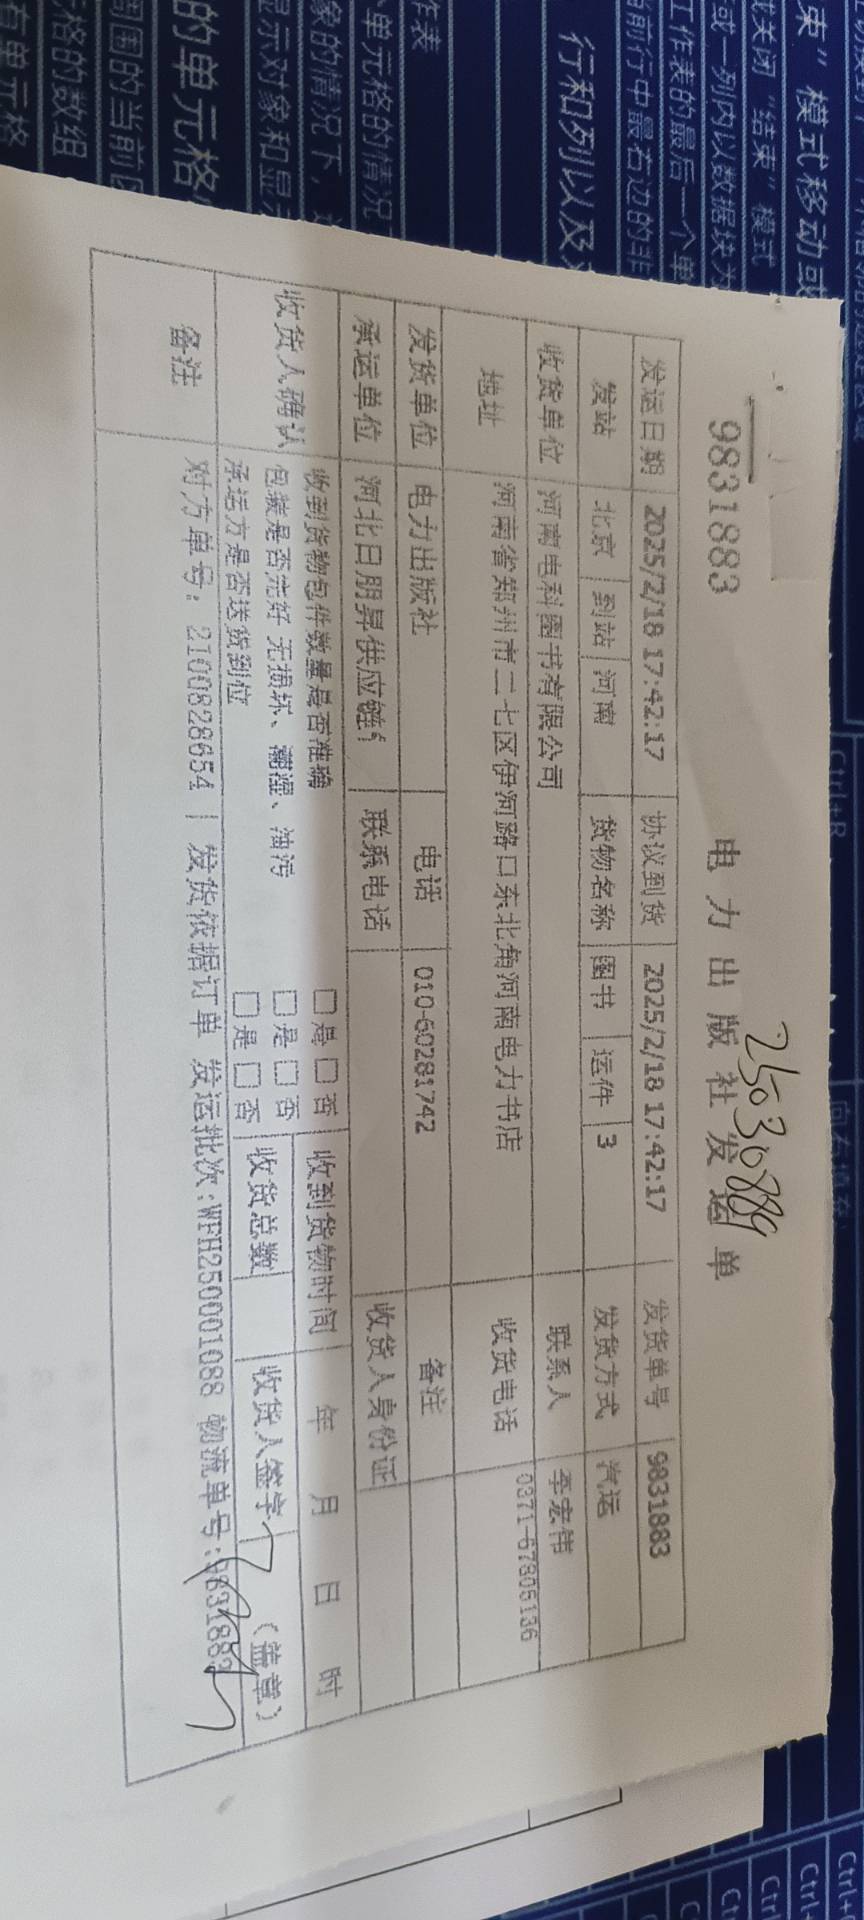 9831883 电力出版社发运单
25030889
发运日期 2025/2/18 17:42:17 协议到货 2025/2/18 17:42:17 发货单号 9831883
发站 北京 到站 河南 货物名称 图书 运件 3 发货方式 汽运
收货单位 河南电科图书有限公司 联系人 李宏伟
地址 河南省郑州市二七区伊河路口东北角河南电力书店 收货电话 0371-67805136
发货单位 电力出版社 电话 010-60281742 备注
承运单位 河北日朋昇供应链 联系电话 收货人身份证
收货人确认 收到货物包件数量是否准确 □是□否 收到货物时间 年 月 日 时
包装是否完好 无损坏、潮湿、油污 □是□否 收货总数 收货人签字 (盖章)
承运方是否送货到位 □是□否
备注 对方单号: 2100828654 | 发货依据订单 发运批次:WFH250001088 物流单号:9831883
行和列以及
束"模式移动或
或关闭"结束"模式
或一列内以数据块为
工作表的最后一个单
当前行中最右边的非
作表
单元格的情况
象的情况下,
显示对象和显示
的单元格
周围的当前区
格的数组
有单元格
Ctrl+R
向右填充